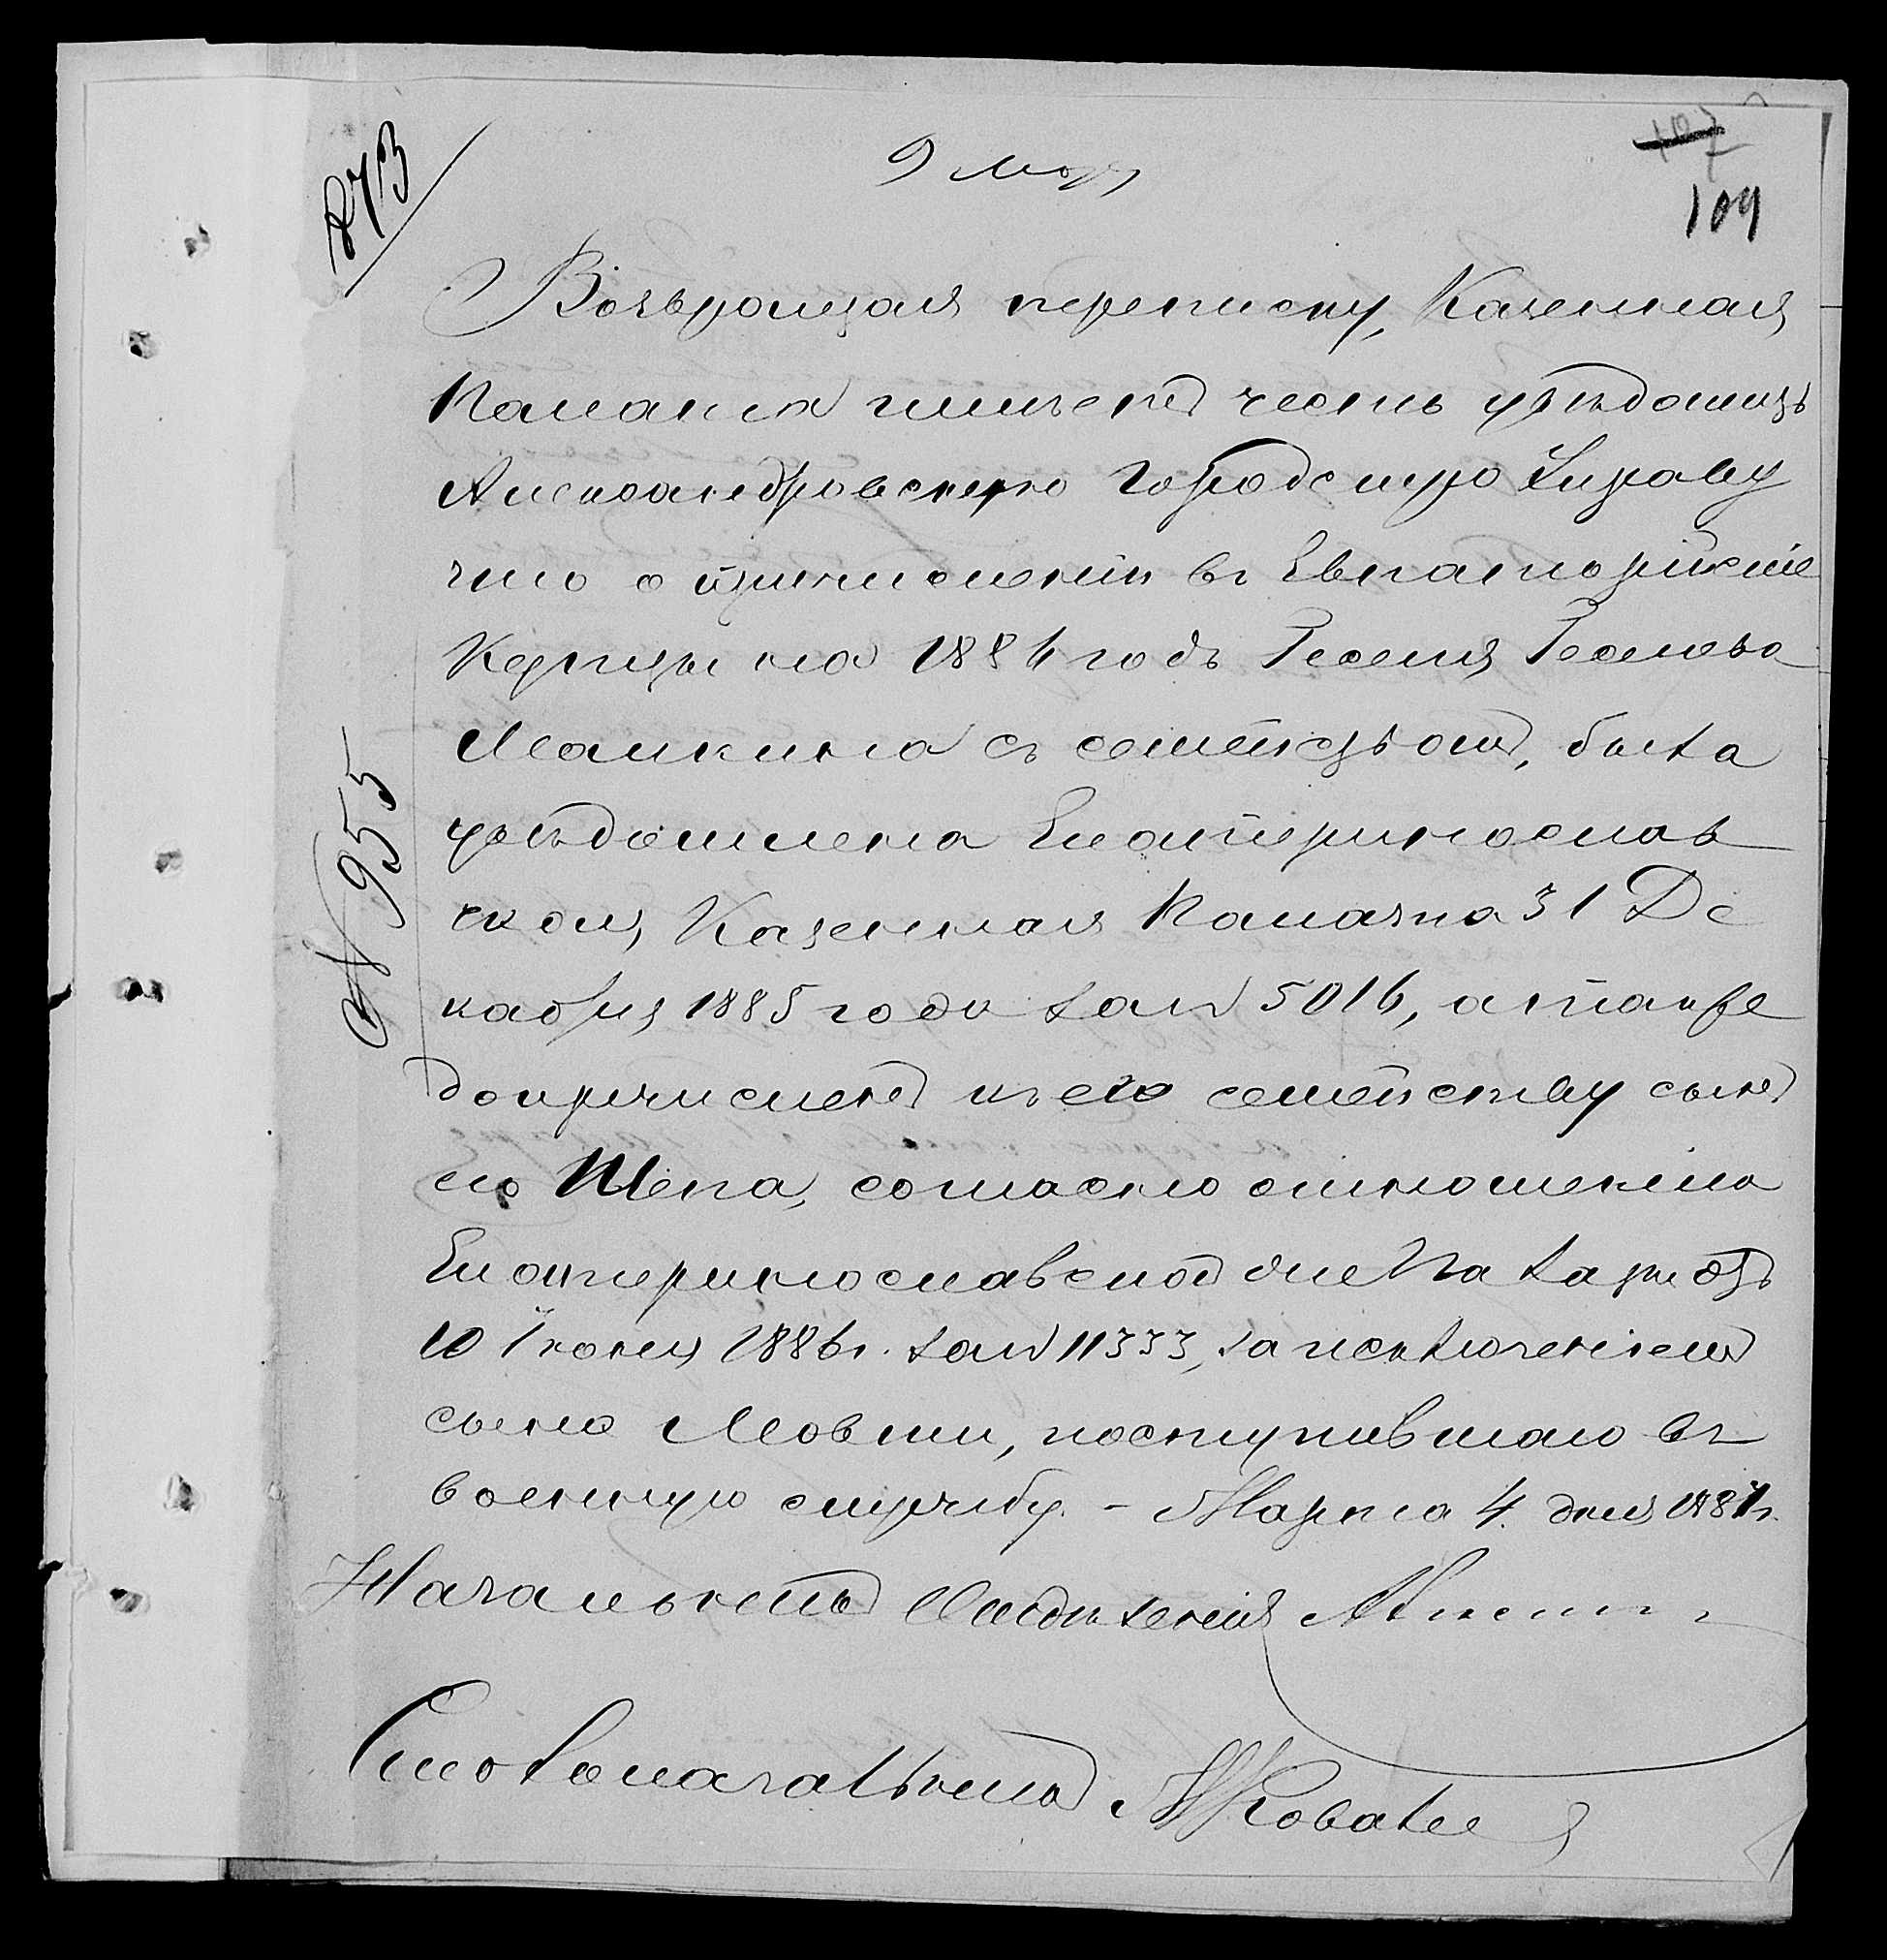 873
9 мар
107
109
Возвращая переписку, Казенная
Палата имѣетъ честь увѣдомить
Александровскую Городскую Управу
что о причисленіи въ Евпаторійскіе
Купцы на 1886 годъ
съ семействомъ, была
увѣдомлена Екатеринослав
ская Казенная Палата 31 Де
кабря 1885 года за № 5016, а также
допричисленъ къ его семейству сынъ
его согласно отношенію
Екатеринославской оне Палаты отъ
10 Іюня 1886 г. за № 11333, за исключеніемъ
сына Мовши, поступившаго въ
военную службу. – Марта 4 дня 1887 г.
№ 955
Начальникъ Отдѣленія
Столоначальникъ